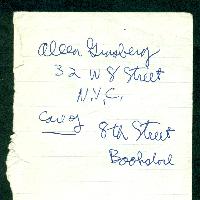 Allen Ginsberg
32 W 8 Street
N.Y.C.
Care of 8th Street
Bookstore